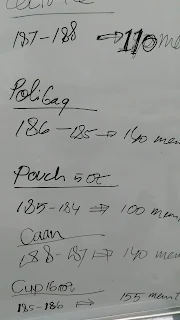 187-188 ⇒ 110 me
Polibag
186-185 → 140 mem
Pouch 5 oz
185-184 ⇒ 100 mem
Caan
188-187 ⇒ 140 mem
Cup 16 oz
185-186 ⇒ 155 mem